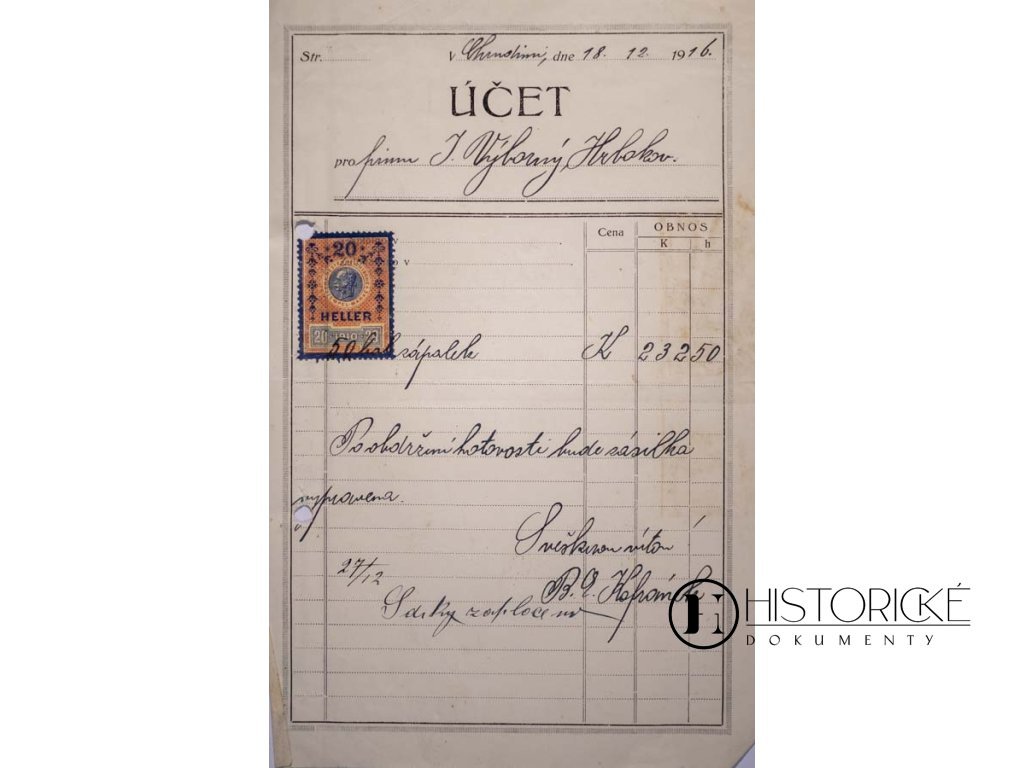 Str.
V Chrudimi, dne 18. 12. 1916.
ÚČET
pro firmu J. Výborný, Hrbokov.
Cena OBNOS
K h
20
HELLER
20 1910 20
50 zápalek K 232 50
Po obdržení hotovosti bude zásilka
vypravena.
S veškerou úctou
27/12 B.
S díky zaplaceno
HISTORICKÉ
DOKUMENTY